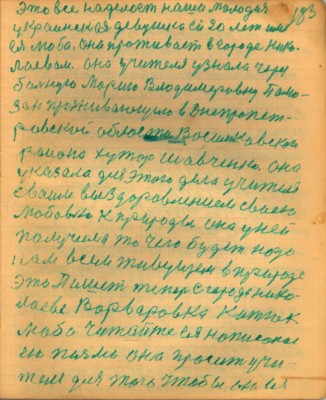 183
Это все наделает наша молодая
украинская девушка ей 20 лет имя
ея Люба. Она проживает в городе Нико-
лаевам. Она учителя узнала через
больную Марию Владимировну
проживающую в Днепропет-
ровской области Васильковской
района хутор Шевченко. Она
указала для этого дела учителя
своим выздоровлением своею
любовью к природи она у ней
получила то чего будет надо
нам всем живущем в природе
Это Пишет теперь с города Нико-
лаеве Варваровка
Люба Читайте ея написаное
ею письмо она просит учи-
теля для того чтобы он ея